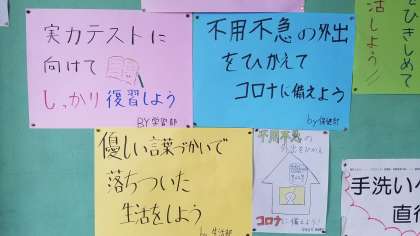 実力テストに
向けて
しっかり復習しよう
BY学習部
不用不急の外出
をひかえて
コロナに備えよう
BY保健部
てひきしめて
活しよう!!
優しい言葉づかいで
落ちついた
生活をしよう
by 生活部
不用不急の
外出をひかえ
コロナに備えよう!
手洗い
直後